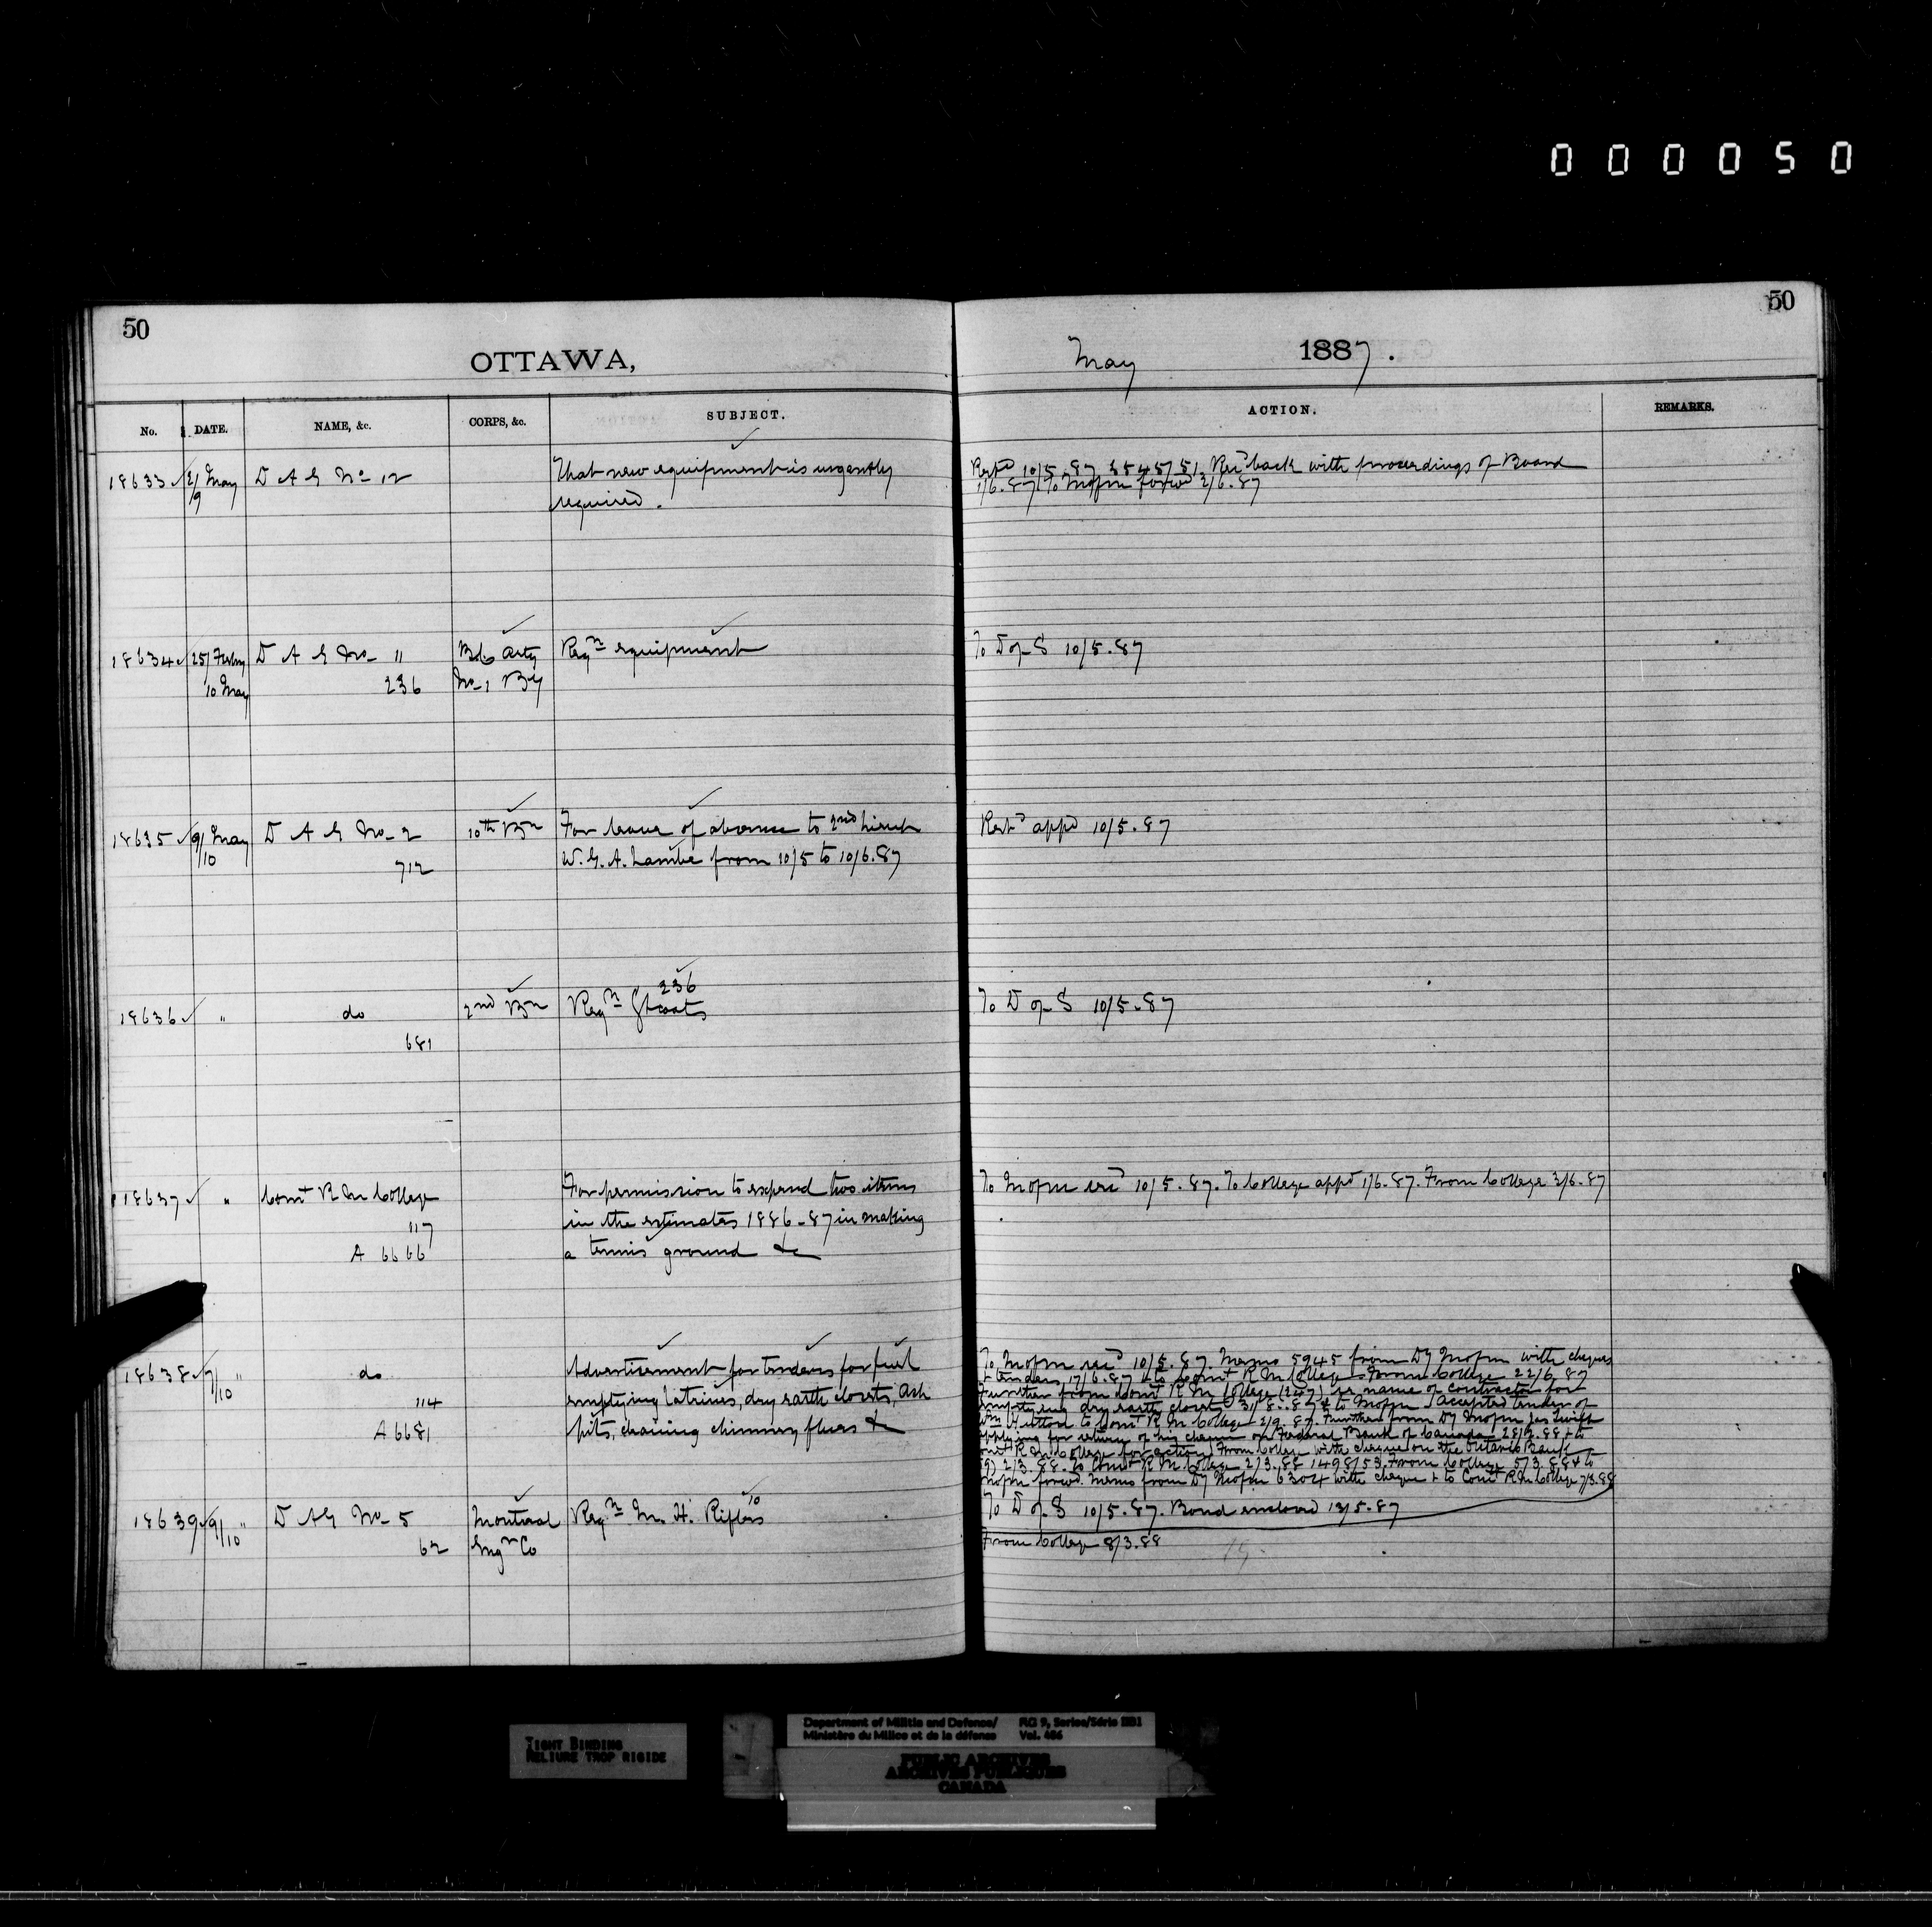 000050
50
50
OTTAWA,
May 1887.
No. DATE. NAME, &c. CORPS, &c. SUBJECT. ACTION. REMARKS.
18633 2/ May D A G No 12 That new equipment is urgently Retd 10/5.87 35457/51. Recd back with proceedings of Board
/9 required. 1/6.87. To Mofm forwd 2/6.87
18634 25/ Febry D A G No 11 Arty Reqn equipment To D of S 10/5.87
10 May 236 No 1 By
18635 9/ May D A G No 2 10th Bn For leave of absence to 2nd Lieut Retd appd 10/5.87
/10 712 W. G. A. Lambe from 10/5 to 10/6.87
18636 " do 2nd Bn Reqn 236 Gtcoats To D of S 10/5.87
681
18637 " Comt R M College For permission to expend two items To Mofm recd 10/5.87. To College appd 1/6.87. From College 3/6.87
117 in the estimates 1886-87 in making
A 6666 a tennis ground &c
18638 7/10 " do Advertisement for tenders for fuel
114 emptying latrines, dry earth closets, Ash
A 6681 pits, cleaning chimney flues &c
To Mofm recd 10/5.87. Memo 5945 from Dy Mofm with cheques
& tenders 17/6.87 & to Comt R M College. From College 22/6.87
Further from Comt R M College (247) re name of contractor for
emptying dry earth closets 31/8.87 & to Mofm Accepted tender of
Wm to Comt R. M. College 2/9.87. Further from Dy Mofm Jas Swift
applying for return of his cheque on Federal Bank of Canada 28/2.88 & to
Comt R M College for action. From College with cheque on the Ontario Bank
2/3.88. to Comt R. M. College 2/3.88 1498/53. From College 5/3.88 & to
Mofm forwd. Memo from Dy Mofm 6304 with cheque & to Comt R M College 7/3.88
From College 8/3.88
18639 9/10 " D A G No 5 Montreal Reqn M. H. Rifles 10 To D of S 10/5.87. Bond enclosed 13/5.87
62 Engr Co
TIGHT BINDING
RELIURE TROP RIGIDE
Department of Militia and Defence/ RG 9, Series/Série IIB1
Ministère du Milice et de la défense Vol. 486
PUBLIC ARCHIVES
ARCHIVES PUBLIQUES
CANADA